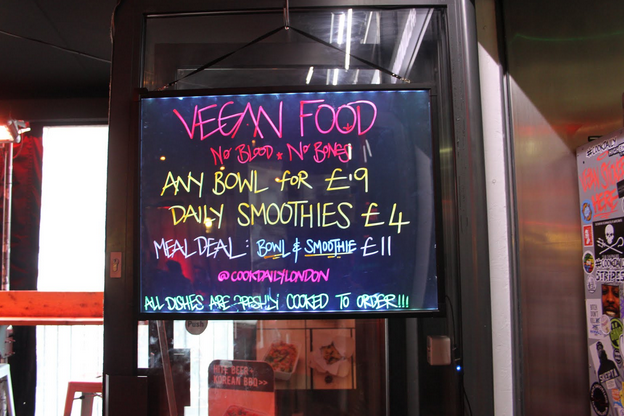 VEGAN FOOD
NO BLOOD . NO BONES
ANY BOWL for £9
DAILY SMOOTHIES £4
MEAL DEAL: BOWL & SMOOTHIE £11
@COOKDAILYLONDON
ALL DISHES ARE FRESHLY COOKED TO ORDER!!!
Push
KOREAN BBQ>>
HERE
STRIPES
SKEPTA